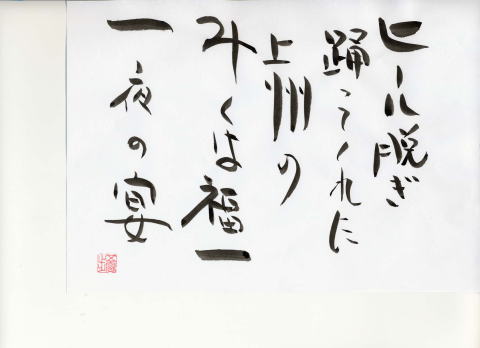 ヒール脱ぎ
踊ってくれた
上州の
みくは福一
一夜の宴